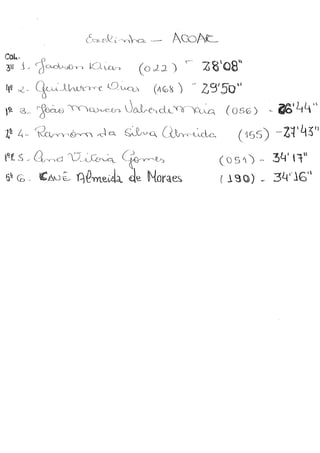 Escolinha - ACOAC
Col.
3º 1- Jadson Klian (022) - 28'08"
4º 2- Guilherme Dias (168) - 29'50"
1º 3- João Marcos Valverde Maia (056) - 26'44"
2º 4- Ramom da Silva Almeida (155) - 27'43"
1º 5- Ana Vitoria Gomes (051) - 34'17"
5º 6- Kauê Almeida de Moraes (190) - 34'16"